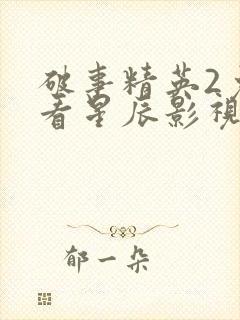 破事精英2
看星辰影视
郁一朵